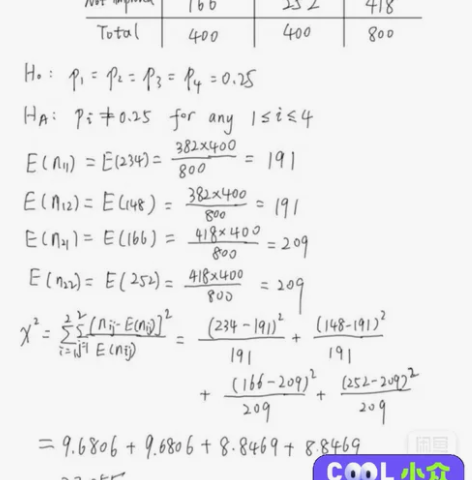 Not improved 166 252 418
Total 400 400 800
H₀: p₁ = p₂ = p₃ = p₄ = 0.25
H_A: pᵢ ≠ 0.25 for any 1 ≤ i ≤ 4
E(n₁₁) = E(234) = 382×400/800 = 191
E(n₁₂) = E(148) = 382×400/800 = 191
E(n₂₁) = E(166) = 418×400/800 = 209
E(n₂₂) = E(252) = 418×400/800 = 209
χ² = Σ²ᵢ₌₁ Σ²ⱼ₌₁ [nᵢⱼ - E(nᵢⱼ)]²/E(nᵢⱼ) = (234-191)²/191 + (148-191)²/191
+ (166-209)²/209 + (252-209)²/209
= 9.6806 + 9.6806 + 8.8469 + 8.8469
COOL小众